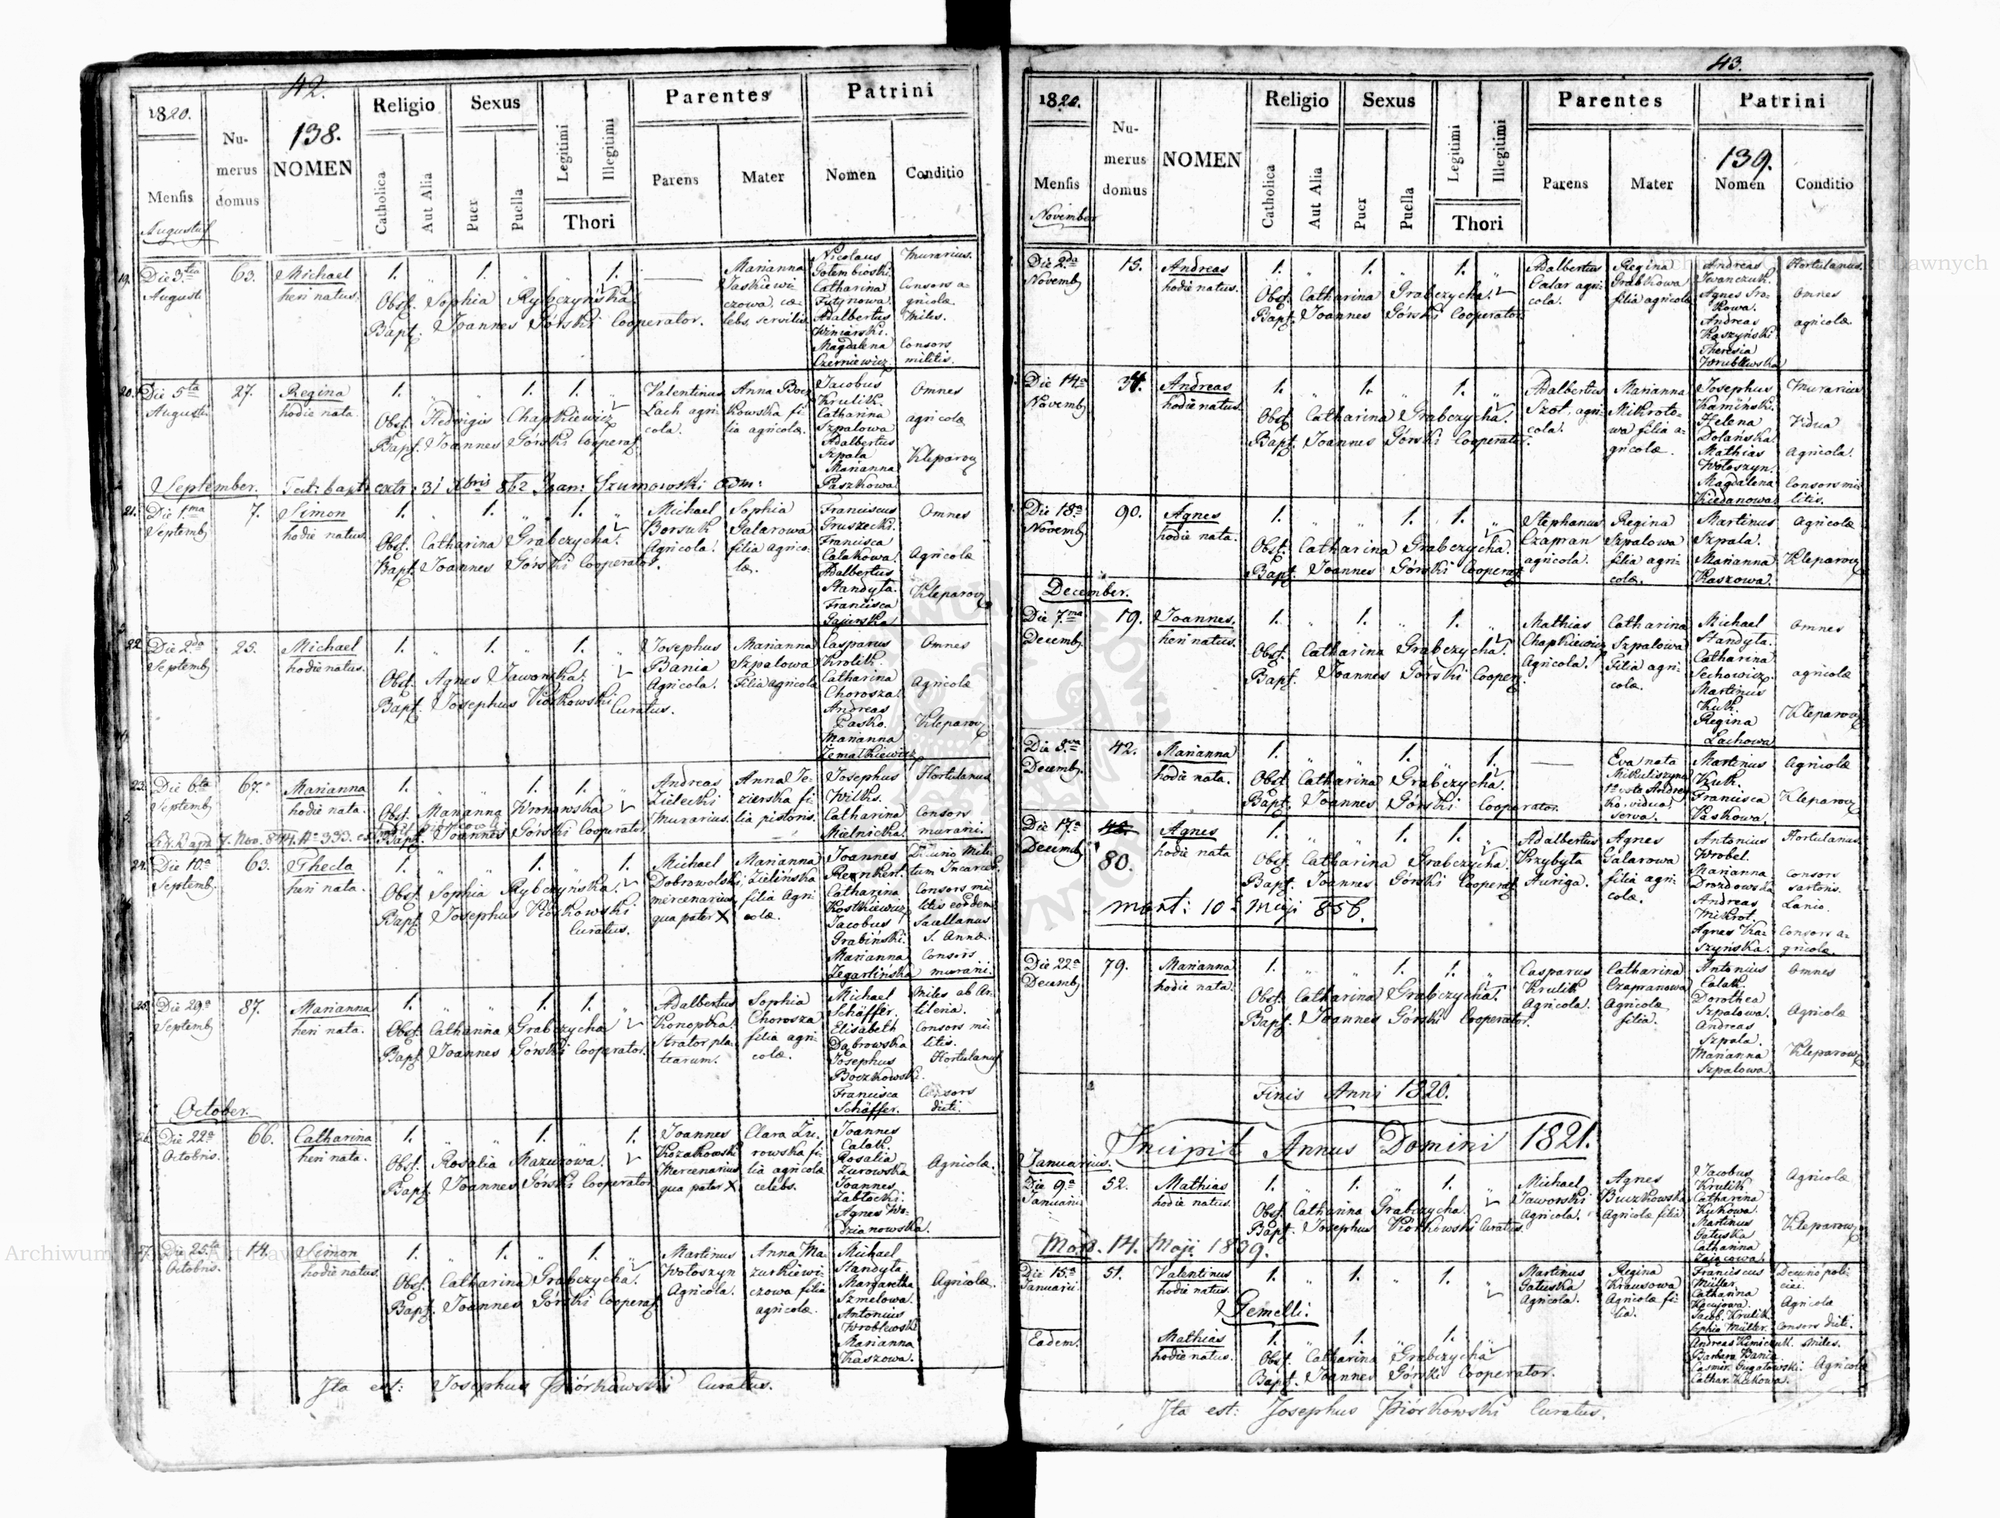 42.
1820.
Numerus domus
138.
NOMEN
Religio
Sexus
Parentes
Patrini
Mensis
Catholica
Aut Alia
Puer
Puella
Legitimi
Illegitimi
Thori
Parens
Mater
Nomen
Conditio
Augusti
19. Die 3tia Augusti
63.
Michael heri natus.
1. 1. 1.
Obst. Sophia Rybczyńska.
Bapt. Joannes Górski Cooperator.
Marianna Jaśkiewiczowa, cælebs, servilis.
Nicolaus Gołembioski.
Catharina Futynowa.
Adalbertus Winiarski.
Magdalena Czerniewicz
Murarius.
Consors agricolæ.
Miles.
Consors militis.
20. Die 5ta Augusti
27.
Regina hodie nata.
1. 1. 1.
Obst. Hedvigis Chapkiewicz
Bapt. Joannes Górski Cooperat.
Valentinus Lach agricola.
Anna Boczkowska filia agricolæ.
Jacobus Krulik.
Catharina Szpalowa
Adalbertus Szpala
Marianna Paszkowa
Omnes agricolæ
Kleparov
September.
Test: bapt: extr: 31 Xbris 862 Szumowski adm:
21. Die 1ma Septemb.
7.
Simon hodie natus.
1. 1. 1.
Obst. Catharina Grabczycha.
Bapt. Joannes Górski Cooperator.
Michael Borsuk Agricola.
Sophia Galarowa filia agricolæ.
Franciscus Gruszecki.
Francisca Calakowa.
Adalbertus Handyta.
Francisca Gajerska
Omnes Agricolæ
Kleparov
22. Die 2da Septemb.
25.
Michael hodie natus.
1. 1. 1.
Obst. Agnes Jaworska.
Bapt. Josephus Piórkowski Curatus.
Josephus Bania Agricola.
Marianna Szpalowa Filia agricolæ
Casparus Krolik.
Catharina Chorosza.
Andreas Pasko.
Marianna Zemałkiewicz
Omnes Agricolæ
Kleparov
23. Die 6ta Septemb.
67.
Marianna hodie nata.
1. 1. 1.
Obst. Marianna Wronowska
Bapt. Joannes Górski Cooperator
Andreas Zielecki Murarius.
Anna Jezierska filia pistoris.
Josephus Wilks.
Catharina Mielnicka.
Hortulanus
Consors murarii.
24. Die 10a Septemb.
63.
Thecla heri nata.
1. 1. 1.
Obst. Sophia Rybczyńska.
Bapt. Josephus Piórkowski Curatus.
Michael Dobrowolski, mercenarius, qua pater X
Marianna Zielińska filia Agricolæ.
Joannes Renkert.
Catharina Kostkiewicz
Jacobus Grabiński.
Marianna Zegartińska
Consors militis eordem.
S. Annæ.
Consors murarii.
25. Die 29a Septemb
87.
Marianna heri nata.
1. 1. 1.
Obst. Catharina Grabczycha
Bapt. Joannes Górski Cooperator.
Adalbertus Konopka. Strator platearum.
Sophia Chorosza filia agricolæ.
Michael Schäffer.
Elisabeth Dąbrowska
Josephus Boczkowski.
Francisca Schäffer.
Miles ab Artileria.
Consors militis.
Hortulanus
Consors dicti.
October.
26. Die 22a Octobris.
66.
Catharina heri nata.
1. 1. 1.
Obst. Rosalia Mazurowa.
Bapt. Joannes Górski Cooperator
Joannes Kozakowski Mercenarius qua pater X.
Clara Żurowska filia agricolæ celebs.
Joannes Calak.
Rosalia Żurowska
Joannes Zabłocki.
Agnes Wozianowska.
Agricolæ.
27. Die 25ta Octobris.
14.
Simon hodie natus.
1. 1. 1.
Obst. Catharina Grabczycha.
Bapt. Joannes Górski Cooperat.
Martinus Wołoszyn Agricola.
Anna Mazurkiewiczowa filia agricolæ.
Michael Handyta.
Margaretha Szmelowa.
Antonius Wroblewski
Marianna Kaszowa.
Agricolæ.
Ita est: Josephus Piórkowski Curatus.
43.
1820.
Numerus domus
NOMEN
Religio
Sexus
Parentes
Patrini
139.
Mensis
Catholica
Aut Alia
Puer
Puella
Legitimi
Illegitimi
Thori
Parens
Mater
Nomen
Conditio
November
Die 2da Novemb
15.
Andreas hodie natus.
1. 1. 1.
Obst. Catharina Grabczycha.
Bapt. Joannes Górski Cooperator
Adalbertus Galar agricola.
Regina Grabkowa filia agricolæ
Andreas Iwanczuk.
Agnes Srokowa.
Andreas Kaszyński
Theresia Wrublewska
Hortulanus.
Omnes agricolæ
Die 14a Novemb
34.
Andreas hodie natus.
1. 1. 1.
Obst. Catharina Grabczycha.
Bapt. Joannes Górski Cooperator.
Adalbertus Szot, agricola.
Marianna Mikrotowa filia agricolæ.
Josephus Kamiński.
Helena Dolańska.
Mathias Wołoszyn.
Magdalena Kiedanowa
Murarius
Vidua
Agricola.
Consors militis.
Die 18a Novemb
90.
Agnes hodie nata.
1. 1. 1.
Obst. Catharina Grabczycha.
Bapt. Joannes Górski Cooperat
Stephanus Czapran agricola.
Regina Szpalowa filia agricolæ.
Martinus Szpala.
Marianna Kaszowa.
Agricolæ
Kleparov
December.
Die 7ma Decemb
19.
Joannes heri natus.
1. 1. 1.
Obst. Catharina Grabczycha.
Bapt. Joannes Górski Cooper.
Mathias Chapkiewicz Agricola.
Catharina Szpalowa filia agricolæ.
Michael Handyta.
Catharina Sechowicz
Martinus Kuk.
Regina Lachowa
Omnes agricolæ
Kleparov
Decemb.
42.
Marianna hodie nata.
1. 1. 1.
Obst. Catharina Grabczycha.
Bapt. Joannes Górski Cooperator.
Eva nata
vidua serva.
Martinus Kuk.
Francisca Paskowa.
Agricolæ
Kleparov
Die 17a Decemb
80.
Agnes hodie nata
1. 1. 1.
Obst. Catharina Grabczycha.
Bapt. Joannes Górski Cooperat
mort: 10 Maji 856.
Adalbertus Przybyta Auriga.
Agnes Galarowa filia agricolæ.
Antonius Wrobel.
Marianna Drozdowska
Andreas Mikrot.
Agnes Kaszyńska.
Hortulanus
Consors sartoris.
Lanio.
Consors agricolæ.
Die 22a Decemb
79.
Marianna hodie nata.
1. 1. 1.
Obst. Catharina Grabczycha.
Bapt. Joannes Górski Cooperator.
Casparus Krulik Agricola.
Catharina Czapranowa Agricolæ filia.
Antonius Calak.
Dorothea Szpalowa.
Andreas Szpala.
Marianna Szpalowa.
Omnes Agricolæ
Kleparov
Finis Anni 1820.
Incipit Annus Domini 1821.
Januarius.
Die 9a Januarii
52.
Mathias hodie natus.
1. 1. 1.
Obst. Catharina Grabczycha.
Bapt. Josephus Piórkowski Curatus.
Mort. 14. Maji 1839.
Michael Jaworski Agricola.
Agnes Buczkowska Agricolæ filia
Jacobus Krulik
Catharina Kukowa.
Martinus Gałuska
Catharina Zającowa.
Agricolæ
Kleparov
Die 15a Januarii
51.
Valentinus hodie natus.
1. 1. 1.
Gemelli.
Martinus Gałuska Agricola.
Regina Krausowa Agricolæ filia.
Franciscus Müller.
Catharina Kocujowa.
Jacob. Krulik
Sophia Müller.
Agricolæ
Consors dicti.
Eadem.
Mathias hodie natus.
1. 1. 1.
Obst. Catharina Grabczycha
Bapt. Joannes Górski Cooperator.
Barbara Bania.
Casimir. Gugatowski.
Cathar. Kukowa.
Miles.
Agricolæ
Ita est: Josephus Piórkowski Curatus.